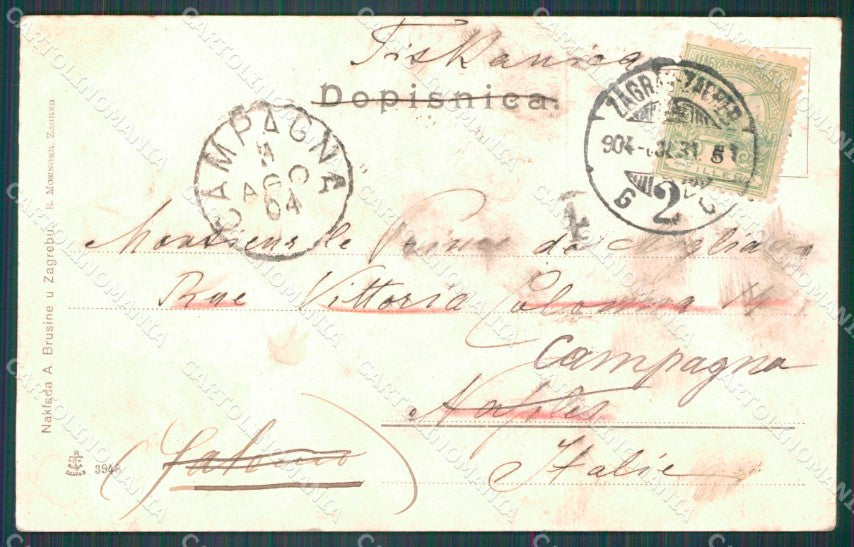 Tiskanica
Dopisnica.
CAMPAGNA
AGO
04
ZÁGRÁB-ZAGREB
904
31
2
Monsieur le Prince
Rue Vittoria Colonna 14
Campagna
Naples
Italie
(Salerno)
Nakladа A. Brusine u Zagrebu. R. Mosinger, Zagreb
3948
CARTOLINOMANIA